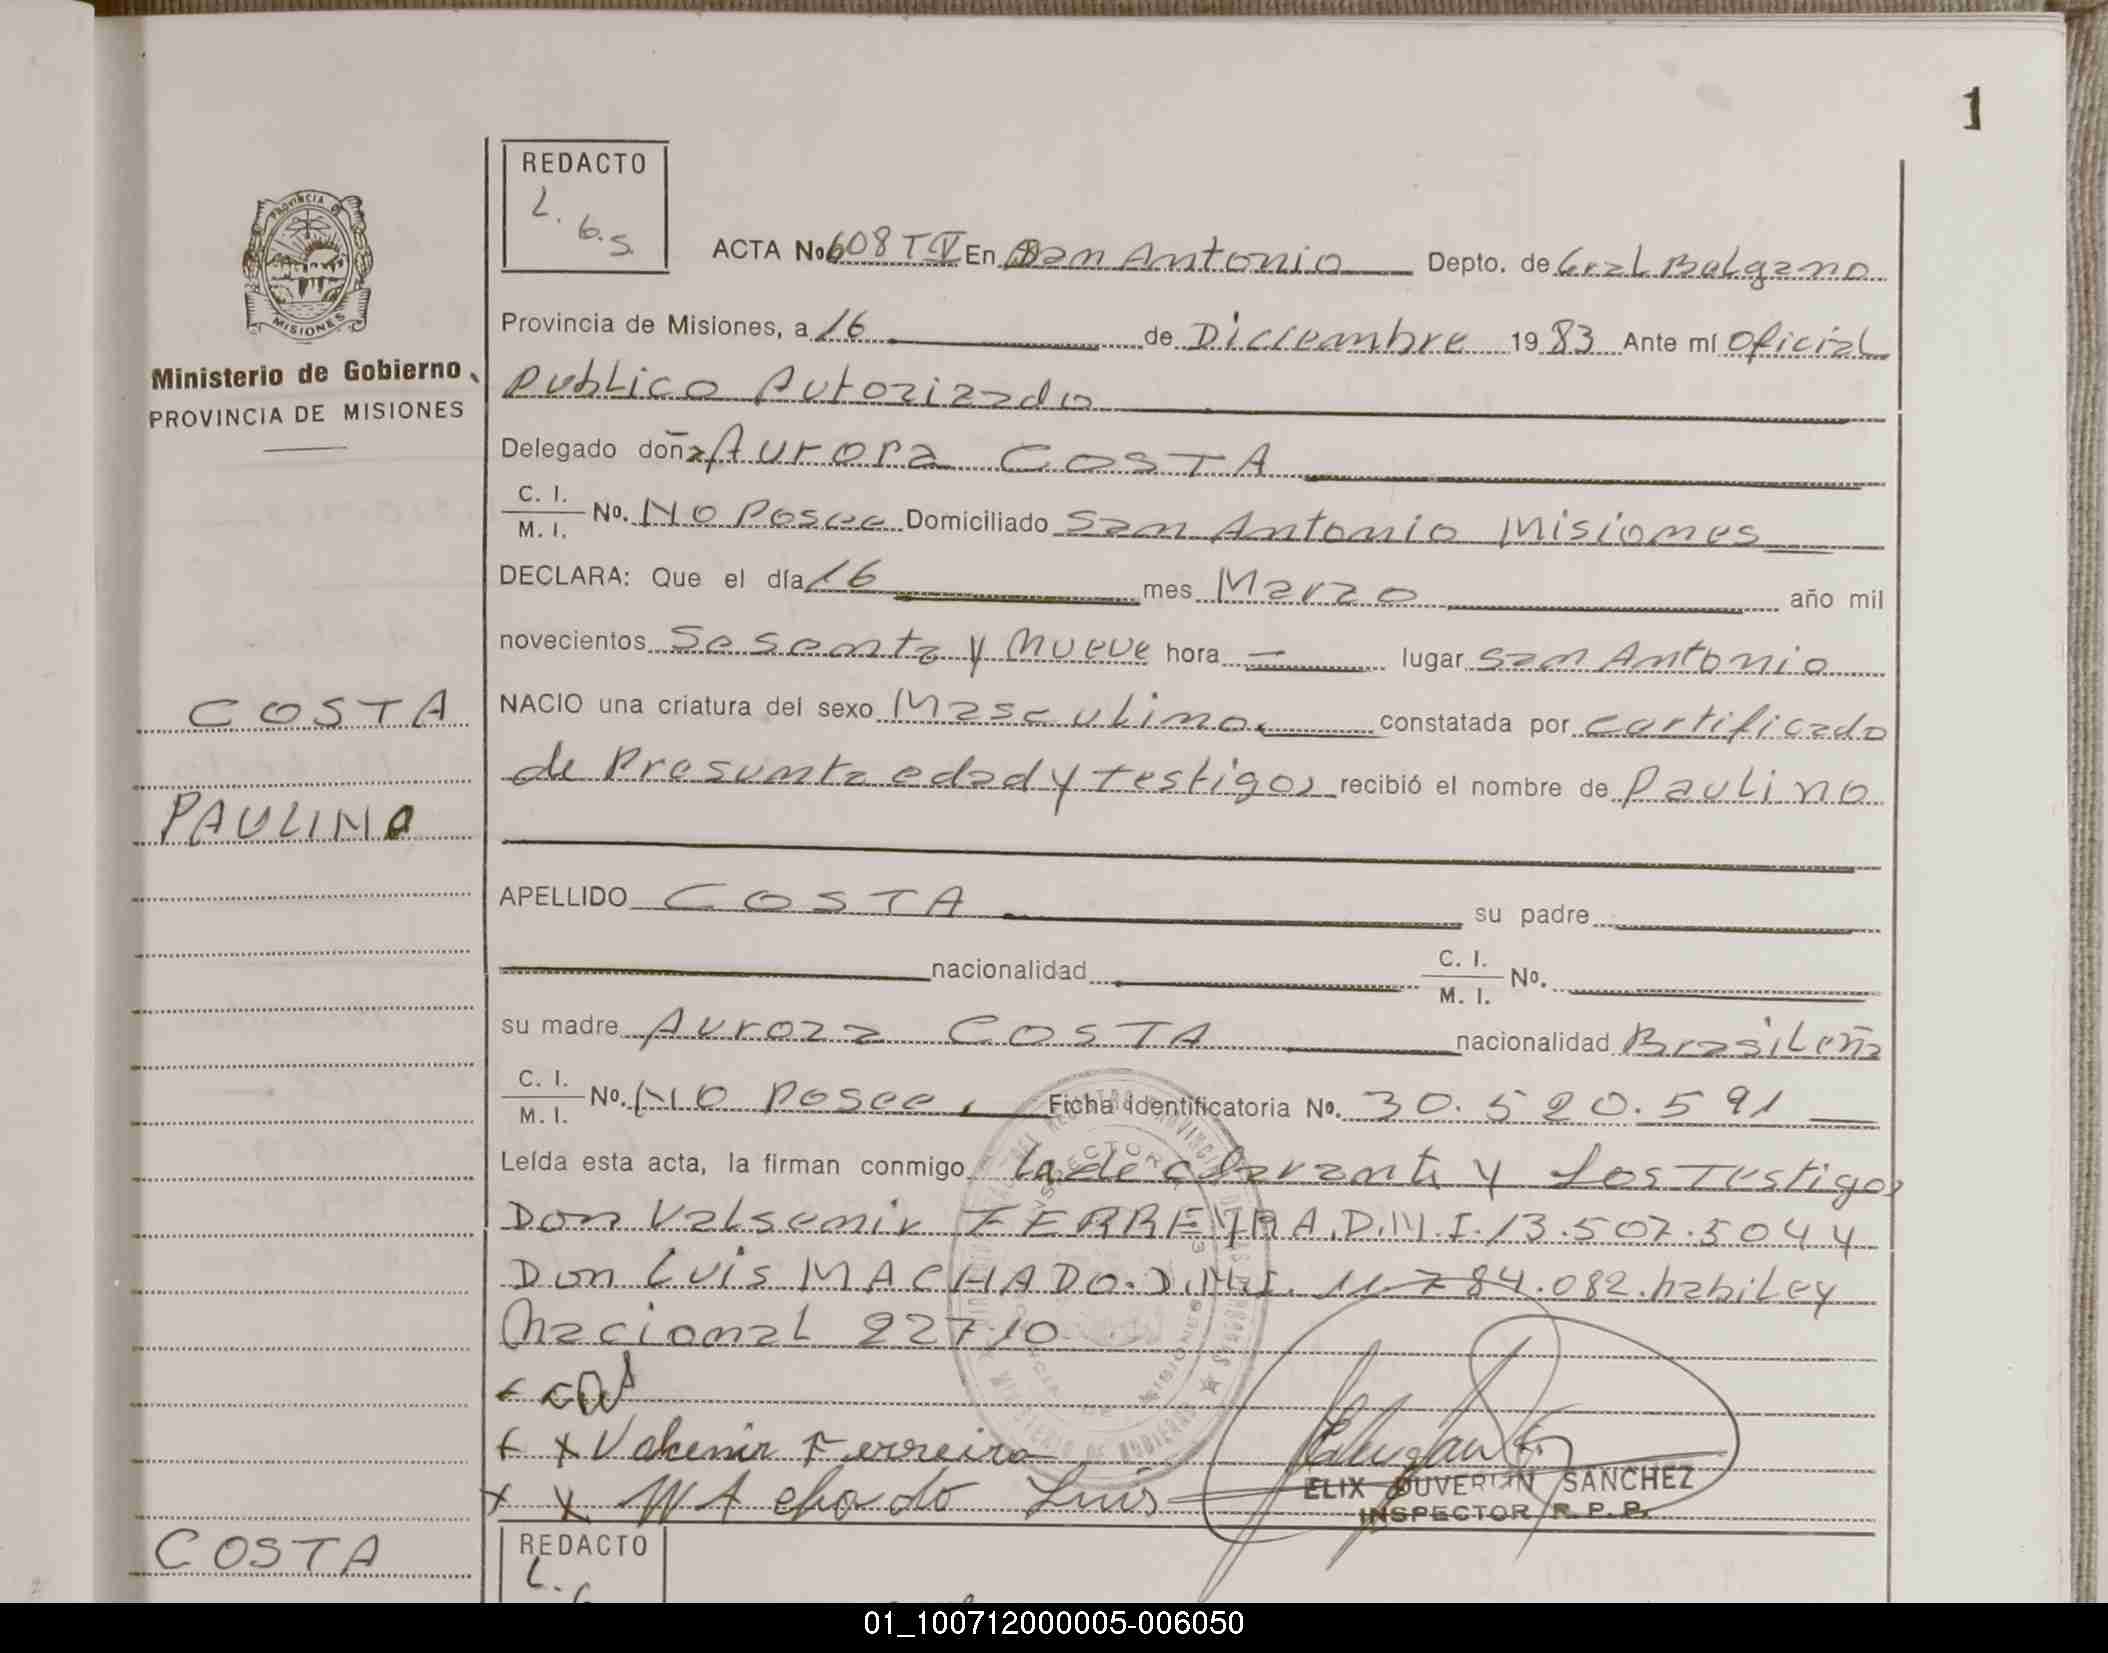 1
REDACTO
L. G. S.
PROVINCIA DE
MISIONES
Ministerio de Gobierno
PROVINCIA DE MISIONES
ACTA No 608 T IV En San Antonio Depto. de Gral Belgrano
Provincia de Misiones, a 16 de Diciembre 1983 Ante mí Oficial
Publico Autorizado
Delegado doña Aurora COSTA
C. I.
M. I. No. No Posee Domiciliado San Antonio Misiones
DECLARA: Que el día 16 mes Marzo año mil
novecientos Sesenta y Nueve hora — lugar San Antonio
COSTA
NACIO una criatura del sexo Masculino. constatada por certificado
de Presunta edad y testigos recibió el nombre de Paulino
PAULINO
APELLIDO COSTA su padre
nacionalidad C. I.
M. I. No.
su madre Aurora COSTA nacionalidad Brasileña
C. I.
M. I. No. No Posee, Ficha Identificatoria No. 30.520.591
Leída esta acta, la firman conmigo la declarante y Los Testigos
Don Valsemir FERREYRA.D.N.I.13.507.504 y
Don Luis MACHADO.D.N.I. 11.784.082.habiLey
Nacional 22710
x Valsemir Ferreira
x x Machado Luis
ELIX DUVERLIN SANCHEZ
INSPECTOR R. P. P.
COSTA
REDACTO
L. G
01_100712000005-006050